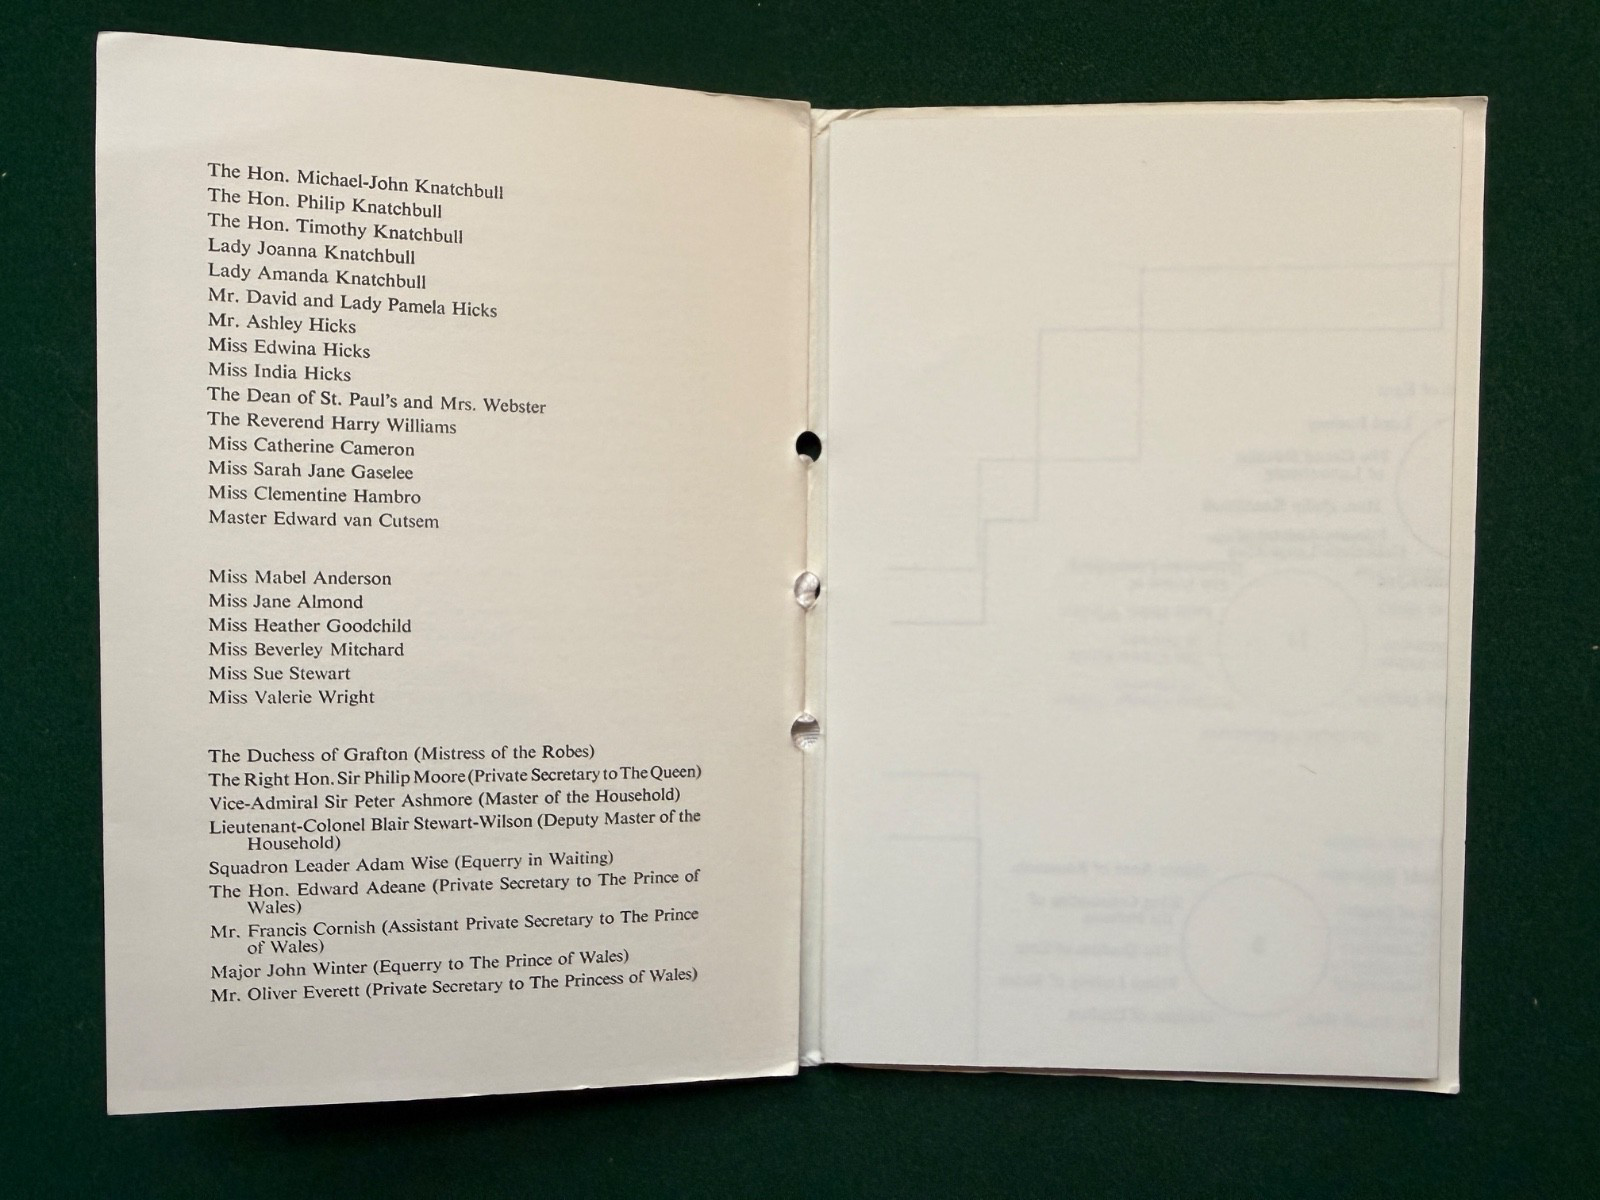 The Hon. Michael-John Knatchbull
The Hon. Philip Knatchbull
The Hon. Timothy Knatchbull
Lady Joanna Knatchbull
Lady Amanda Knatchbull
Mr. David and Lady Pamela Hicks
Mr. Ashley Hicks
Miss Edwina Hicks
Miss India Hicks
The Dean of St. Paul's and Mrs. Webster
The Reverend Harry Williams
Miss Catherine Cameron
Miss Sarah Jane Gaselee
Miss Clementine Hambro
Master Edward van Cutsem
Miss Mabel Anderson
Miss Jane Almond
Miss Heather Goodchild
Miss Beverley Mitchard
Miss Sue Stewart
Miss Valerie Wright
The Duchess of Grafton (Mistress of the Robes)
The Right Hon. Sir Philip Moore (Private Secretary to The Queen)
Vice-Admiral Sir Peter Ashmore (Master of the Household)
Lieutenant-Colonel Blair Stewart-Wilson (Deputy Master of the
Household)
Squadron Leader Adam Wise (Equerry in Waiting)
The Hon. Edward Adeane (Private Secretary to The Prince of
Wales)
Mr. Francis Cornish (Assistant Private Secretary to The Prince
of Wales)
Major John Winter (Equerry to The Prince of Wales)
Mr. Oliver Everett (Private Secretary to The Princess of Wales)